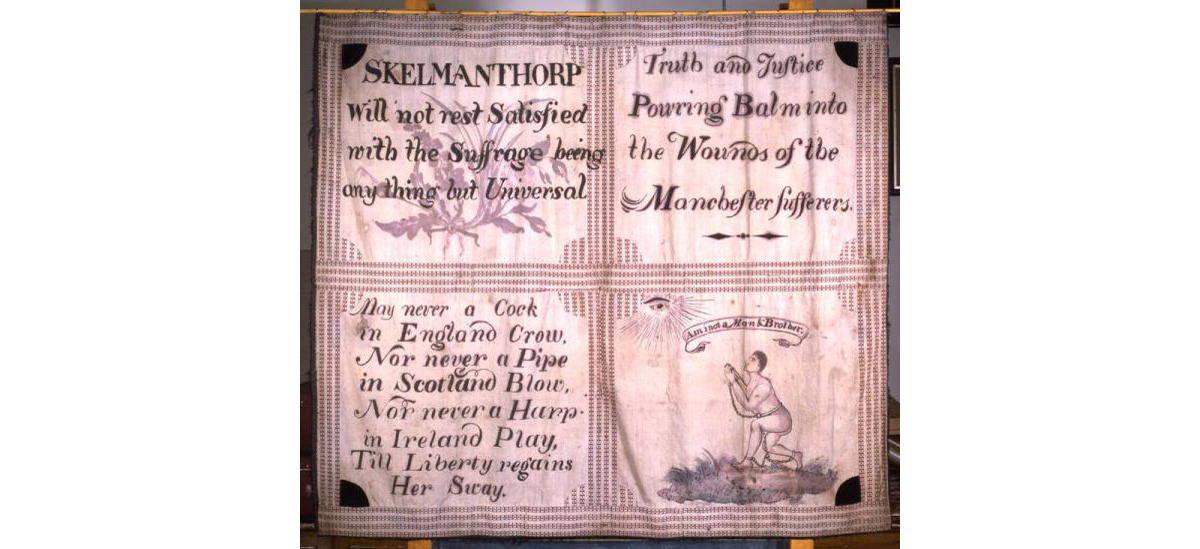 SKELMANTHORP
Will not rest Satisfied
with the Suffrage being
any thing but Universal
Truth and Justice
Powring Balm into
the Wounds of the
Manchester sufferers.
May never a Cock
in England Crow,
Nor never a Pipe
in Scotland Blow,
Nor never a Harp
in Ireland Play,
Till Liberty regains
Her Sway.
Am i not a Man & Brother.